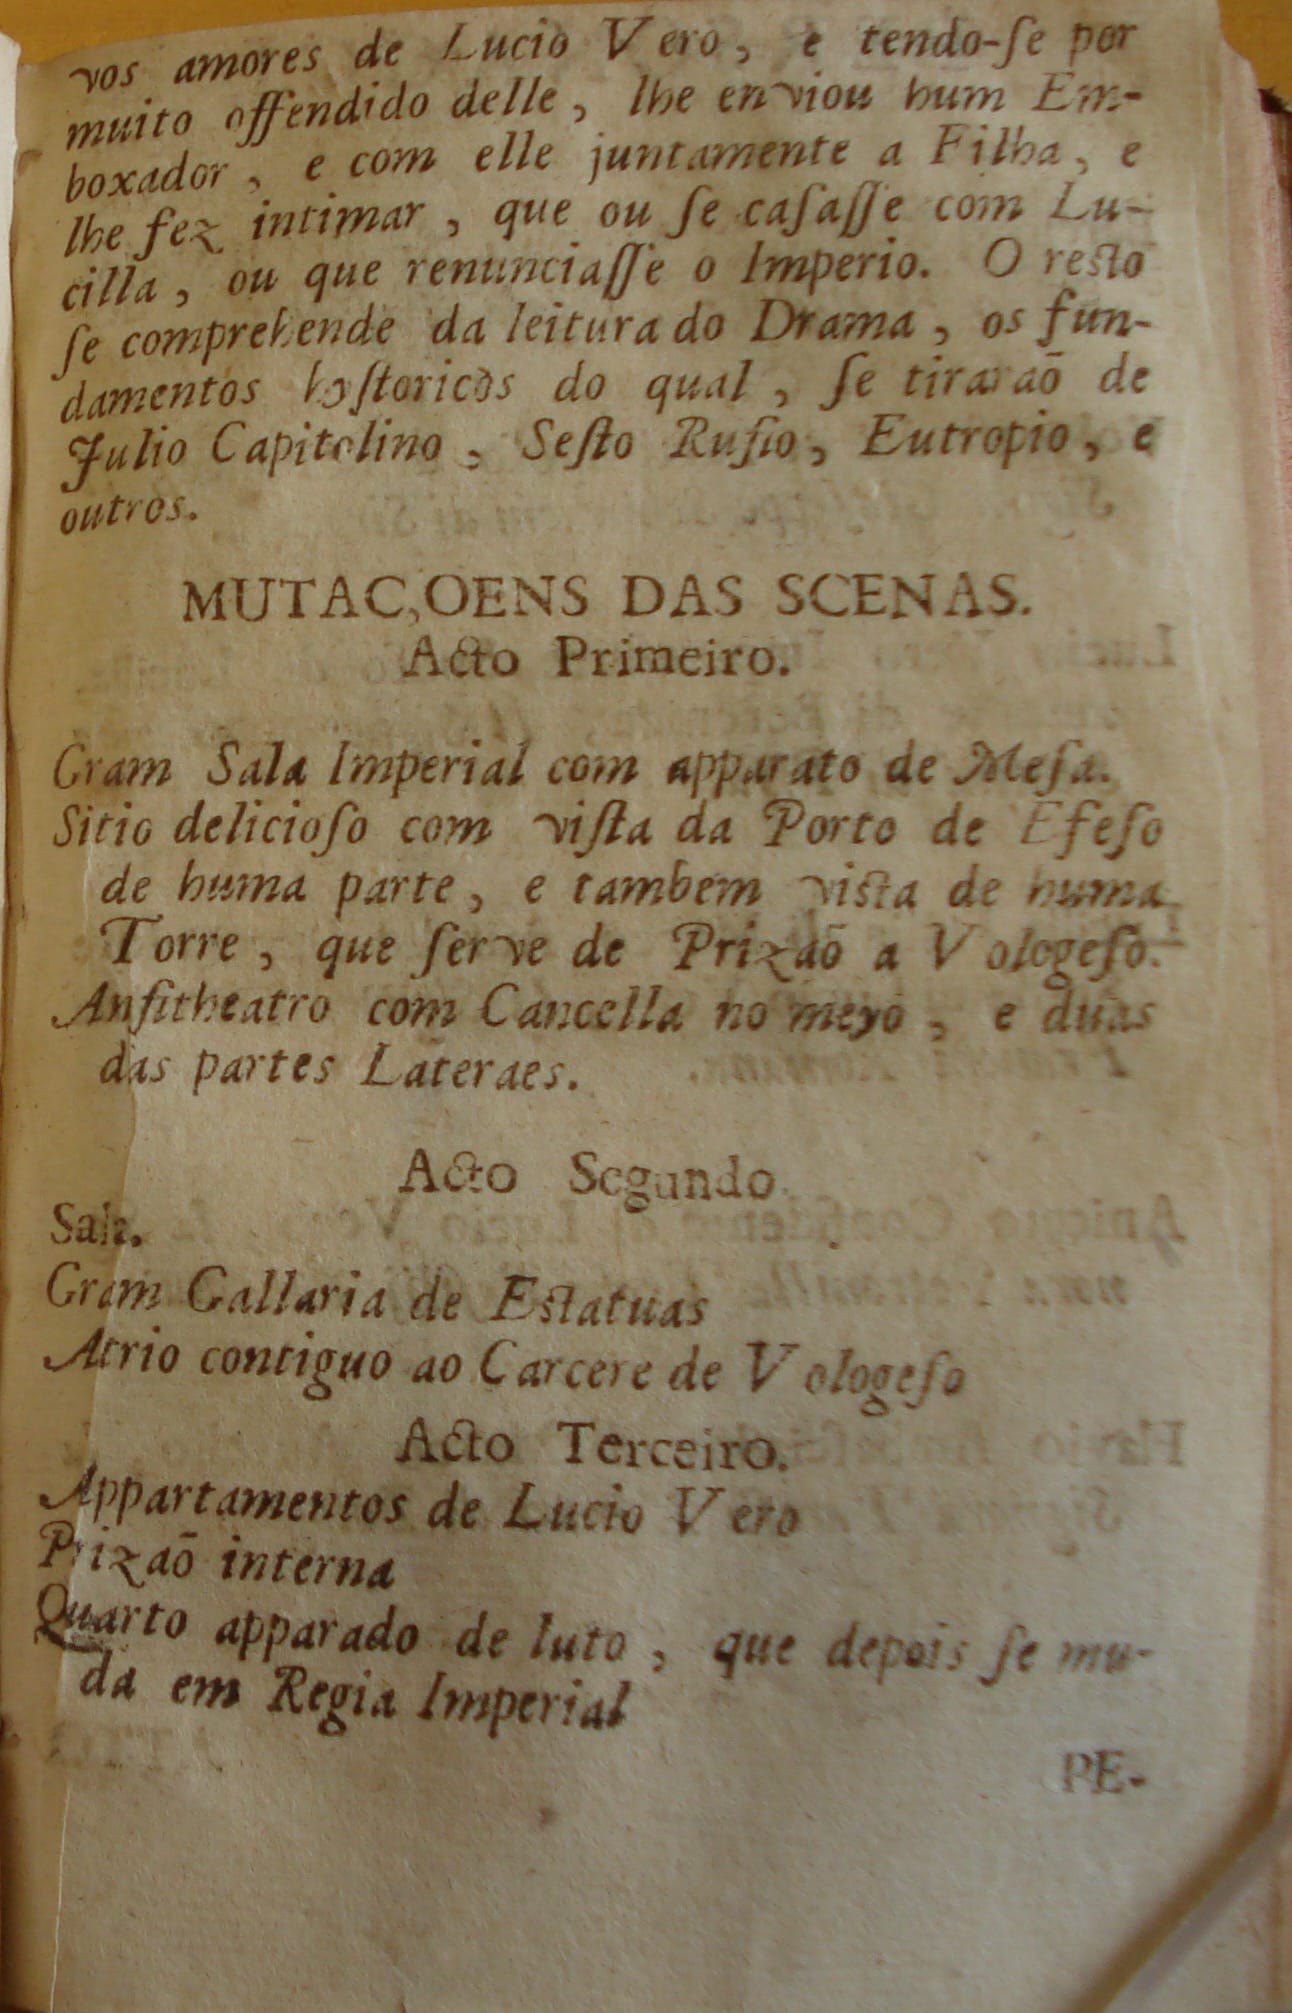 vos amores de Lucio Vero, e tendo-ſe por
muito offendido delle, lhe enviou hum Em-
boxador, e com elle juntamente a Filha, e
lhe fez intimar, que ou ſe caſaſſe com Lu-
cilla, ou que renunciaſſe o Imperio. O reſto
ſe comprehende da leitura do Drama, os fun-
damentos hyſtoricos do qual, ſe tiraraõ de
Julio Capitolino, Seſto Rufio, Eutropio, e
outros.
MUTAC,OENS DAS SCENAS.
Acto Primeiro.
Gram Sala Imperial com apparato de Meſa.
Sitio delicioſo com viſta da Porto de Efeſo
de huma parte, e tambem viſta de huma
Torre, que ſerve de Prizaõ a Vologeſo.
Anfitheatro com Cancella no meyo, e duas
das partes Lateraes.
Acto Segundo.
Sala.
Gram Gallaria de Eſtatuas
Atrio contiguo ao Carcere de Vologeſo
Acto Terceiro.
Appartamentos de Lucio Vero
Prizaõ interna
Quarto apparado de luto, que depois ſe mu-
da em Regia Imperial
PE-